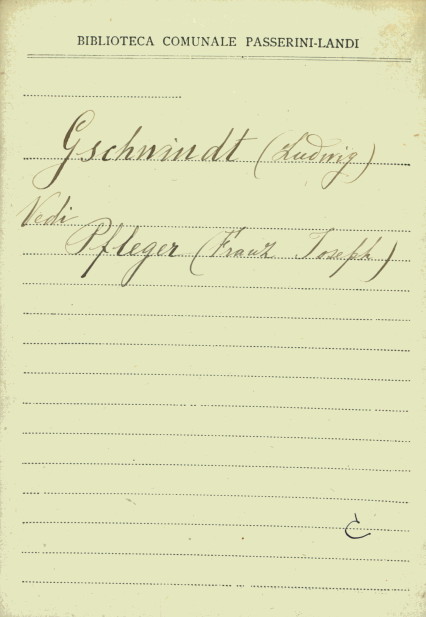 BIBLIOTECA COMUNALE PASSERINI-LANDI
Gschwindt (Ludwig)
Vedi
Pfleger (Franz Joseph)